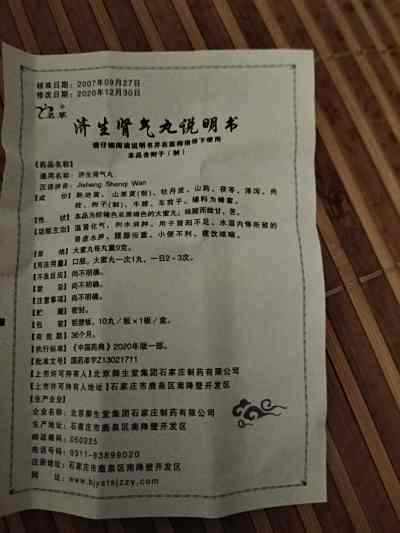 核准日期：2007年09月27日
修改日期：2020年12月30日
济生肾气丸说明书
请仔细阅读说明书并在医师指导下使用
本品含附子（制）
【药品名称】
通用名称：济生肾气丸
汉语拼音：Jisheng Shenqi Wan
【成　　份】熟地黄、山茱萸（制）、牡丹皮、山药、茯苓、泽泻、肉
桂、附子（制）、牛膝、车前子。辅料为蜂蜜。
【性　　状】本品为棕褐色至黑褐色的大蜜丸；味酸而微甘、苦。
【功能主治】温肾化气，利水消肿。用于肾阳不足、水湿内停所致的
肾虚水肿、腰膝酸重、小便不利、痰饮咳喘。
【规　　格】大蜜丸每丸重9克。
【用法用量】口服。大蜜丸一次1丸，一日2-3次。
【不良反应】尚不明确。
【禁　　忌】尚不明确。
【注意事项】尚不明确。
【贮　　藏】密封。
【包　　装】铝塑板，10丸/板×1板/盒。
【有 效 期】36个月。
【执行标准】《中国药典》2020年版一部。
【批准文号】国药准字Z13021711
【上市许可持有人】北京御生堂集团石家庄制药有限公司
【上市许可持有人地址】石家庄市鹿泉区南降壁开发区
【生产企业】
企业名称：北京御生堂集团石家庄制药有限公司
生产地址：石家庄市鹿泉区南降壁开发区
邮政编码：050225
电话号码：0311-83899020
注册地址：石家庄市鹿泉区南降壁开发区
网　　址：www.bjystsjzzy.com